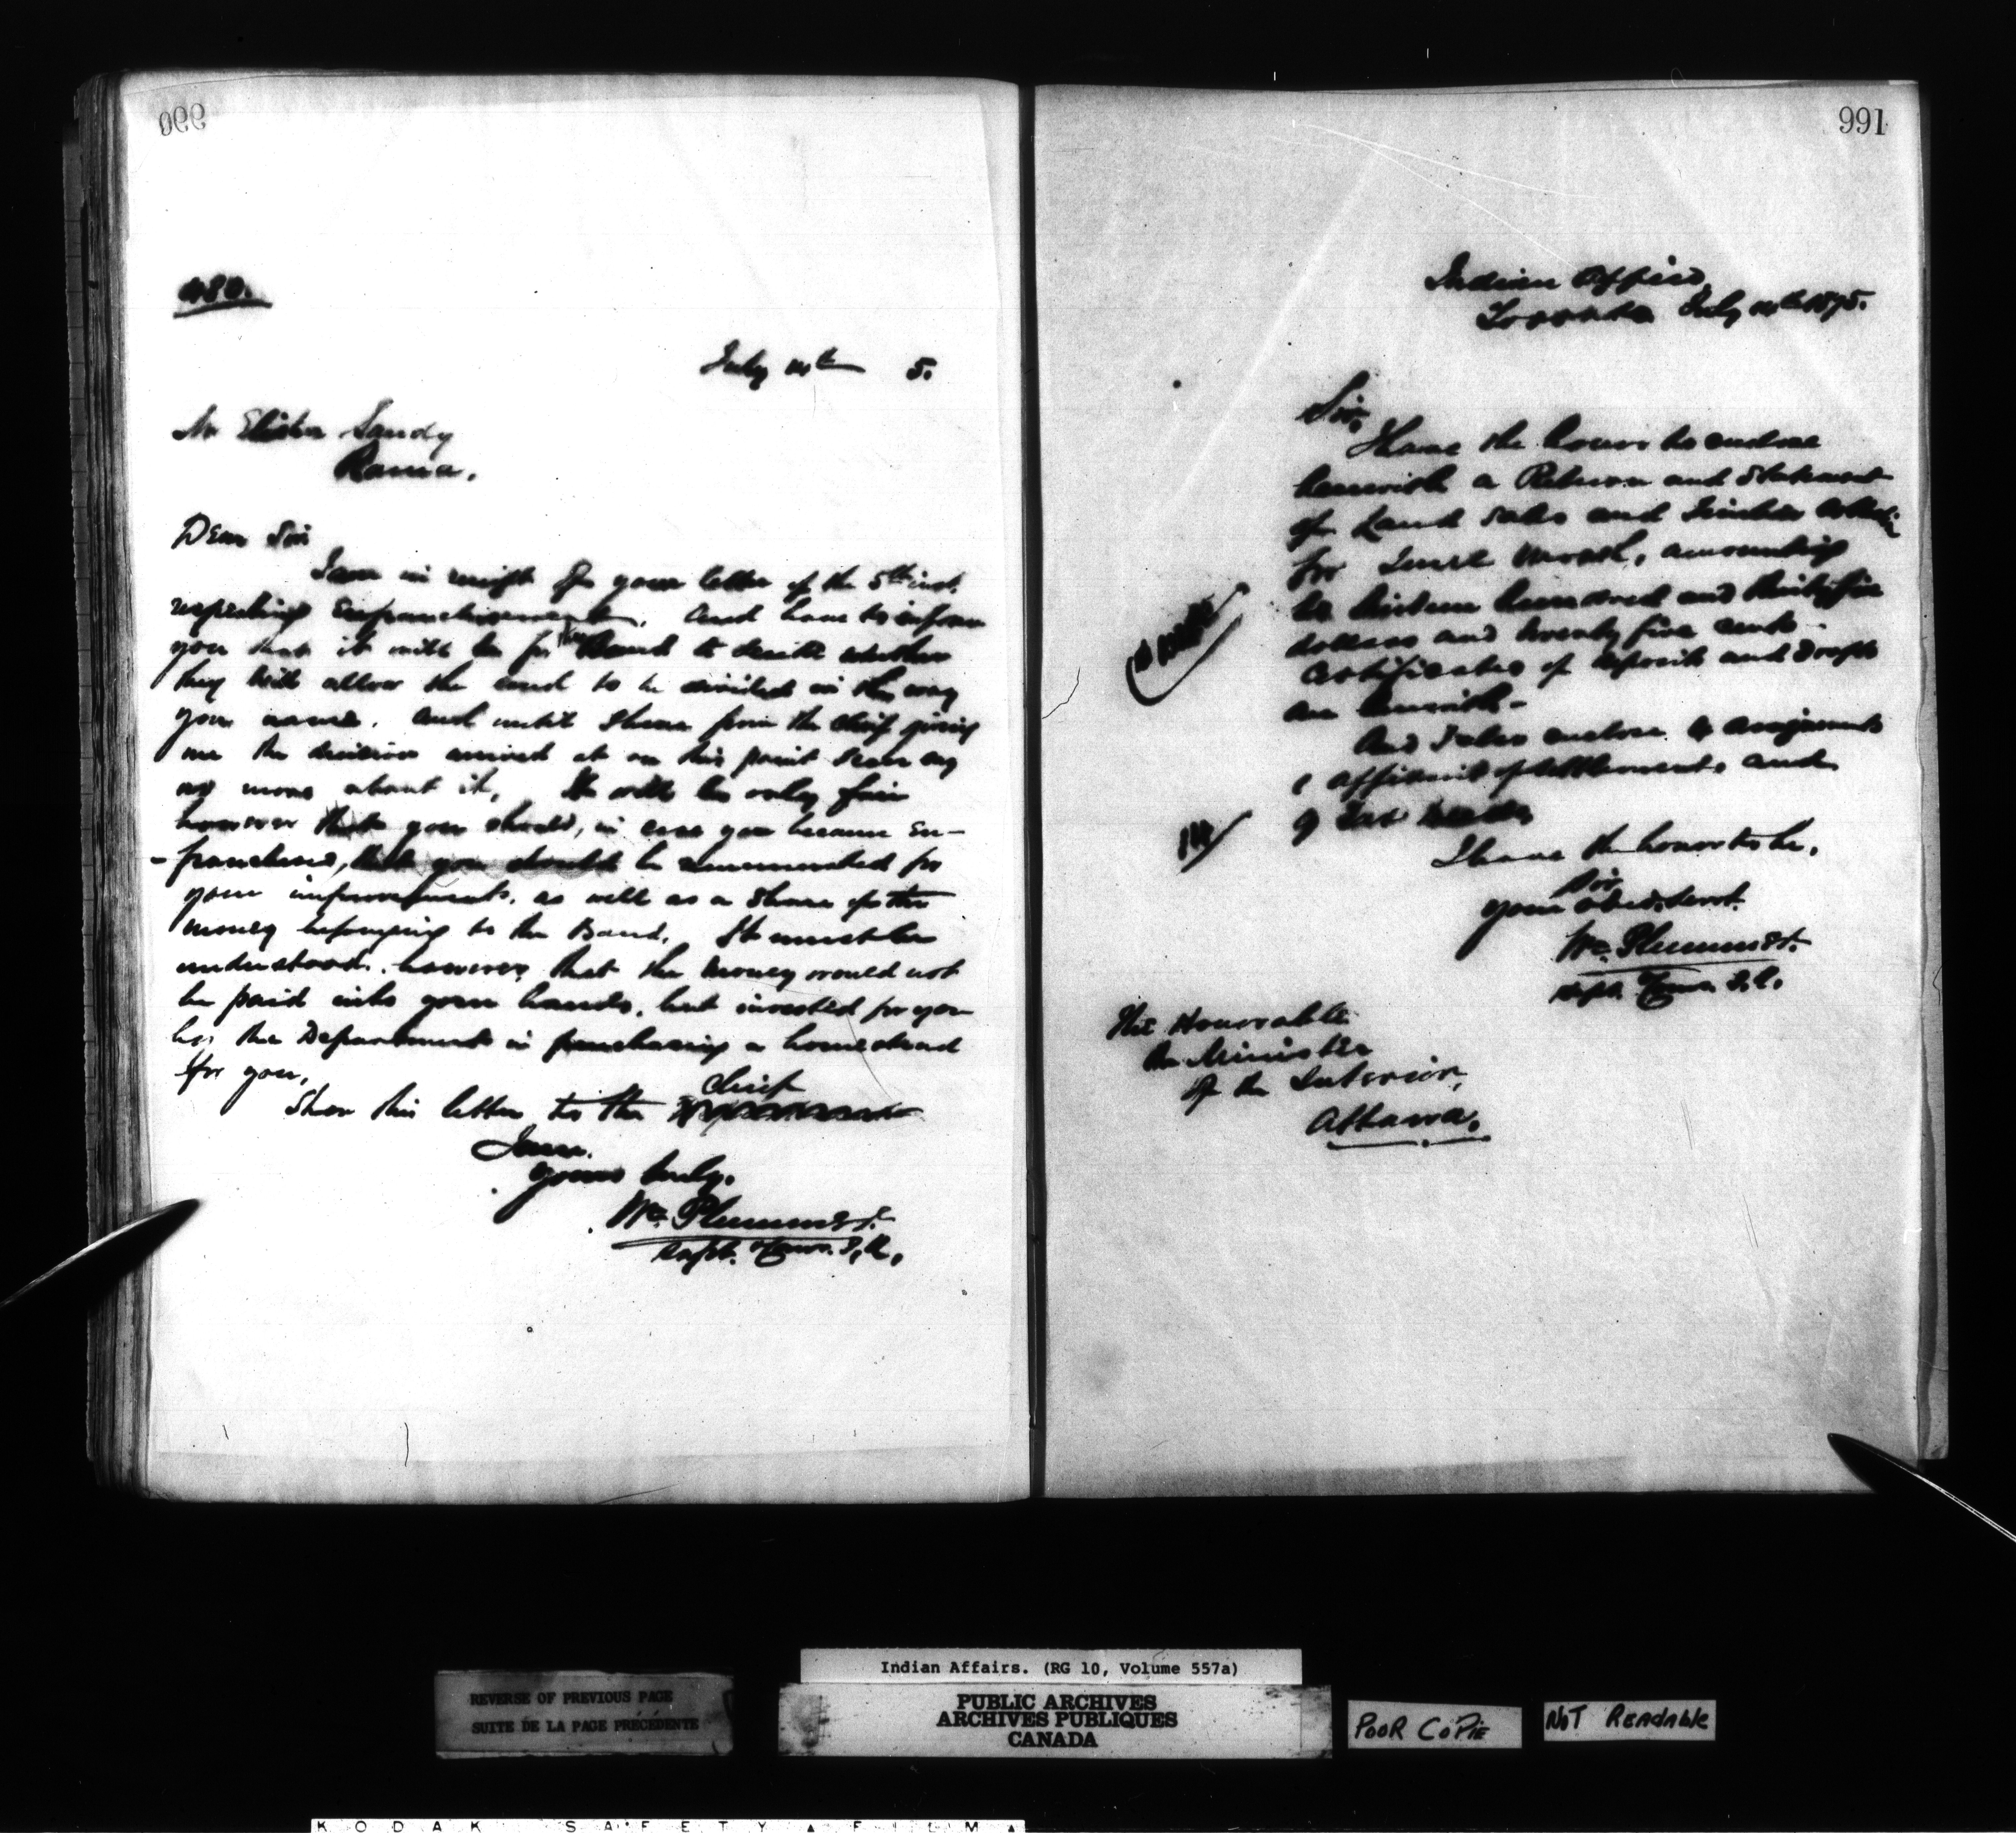 990
480.
July 14th 5.
Mr Elisha Sandy
Rama.
Dear Sir
I am in receipt of your letter of the 5th inst.
respecting Enfranchisement, and have to inform
you that it will be for the Band to decide whether
they will allow the land to be divided in the way
you name. and until I hear from the chief giving
me the decision arrived at on this point I can say
no more about it. It will be only fair
however that you should, in case you became en-
-franchised, that you should be remunerated for
your improvements. as well as a share of the
money belonging to the Band. It must be
understood. however, that the money would not
be paid into your hands. but invested for you
by the Department in purchasing a homestead
for you.
Show this letter to the chief
I am.
yours truly.
Wm Plummer.
Supt. & Comr. I.A.
991
Indian Office,
Toronto July 14th 1875.
Sir,
I have the honor to enclose
herewith a Return and Statement
of Land Sales and Timber
for June month, amounting
to hundred and thirty five
dollars and twenty five cents.
Certificates of deposit and drafts
are herewith -
And I also enclose assignments
affidavit of settlement, and
I have the honor to be,
Sir
your obed. Servt.
Wm Plummer.
Supt. & Comr. I.A.
The Honorable
the Minister
of the Interior,
Ottawa.
REVERSE OF PREVIOUS PAGE
SUITE DE LA PAGE PRÉCÉDENTE
Indian Affairs. (RG 10, Volume 557a)
PUBLIC ARCHIVES
ARCHIVES PUBLIQUES
CANADA
POOR COPIE
NOT READABLE
KODAK SAFETY FILM